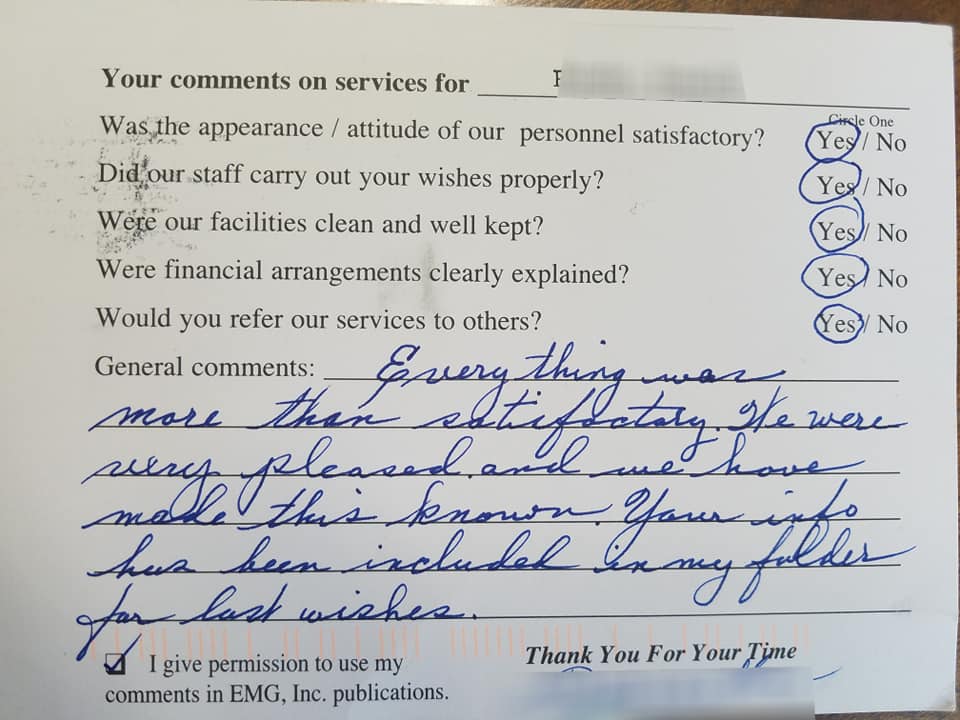 Your comments on services for
Circle One
Was the appearance / attitude of our personnel satisfactory? Yes / No
Did our staff carry out your wishes properly? Yes / No
Were our facilities clean and well kept? Yes / No
Were financial arrangements clearly explained? Yes / No
Would you refer our services to others? Yes / No
General comments: Everything was
more than satisfactory. We were
very pleased and we have
made this known. Your info
has been included in my folder
for last wishes.
I give permission to use my
comments in EMG, Inc. publications.
Thank You For Your Time